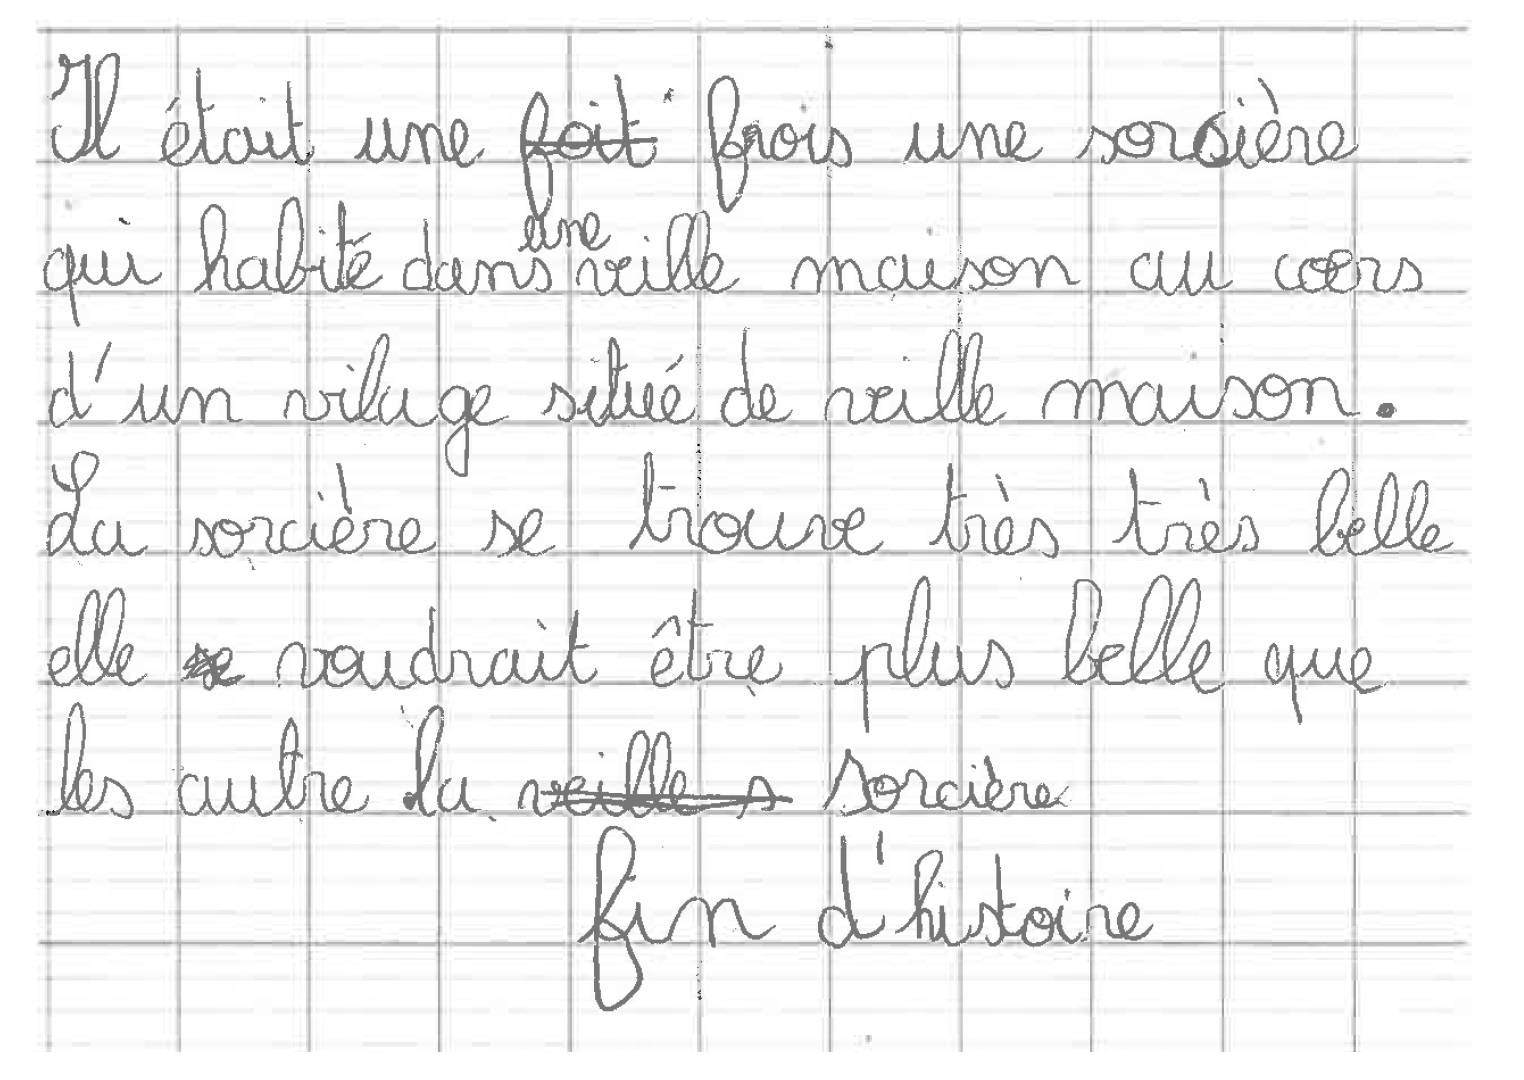 Il était une foit frois une sorsière
qui habité dans une veille maison au cœrs
d'un vilage situé de veille maison.
La sorcière se trouve très très belle
elle se voudrait être plus belle que
les autre la veille s sorcière
fin d'histoire